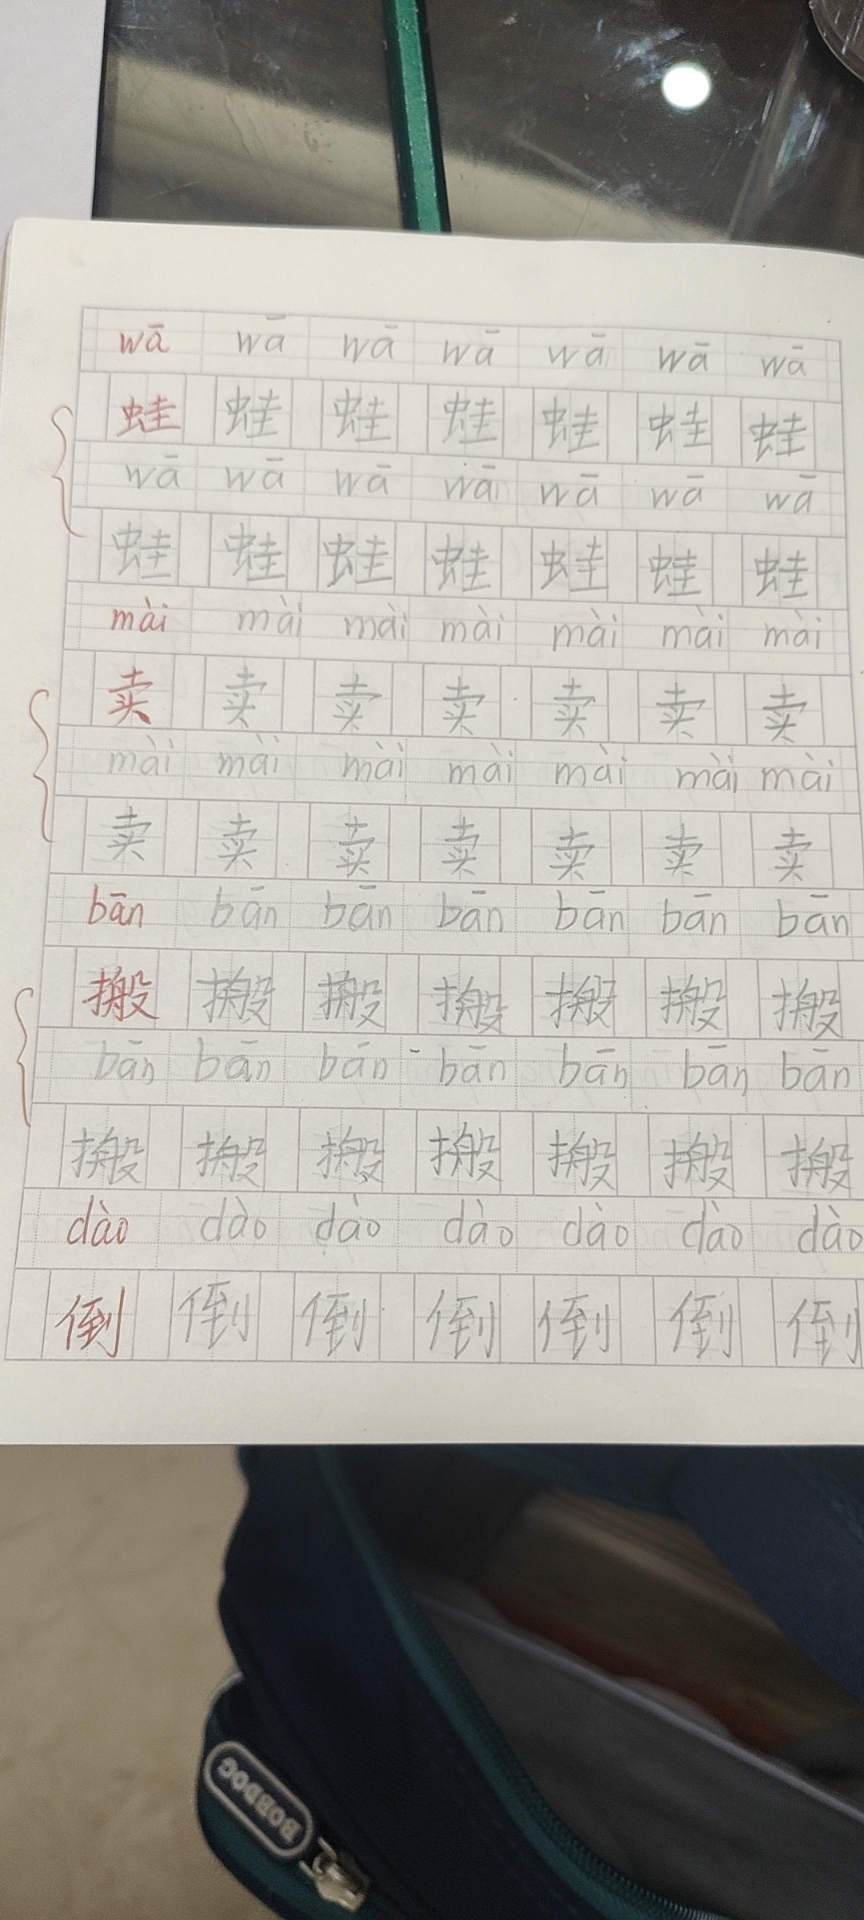 wā wā wā wā wā wā wā
蛙 蛙 蛙 蛙 蛙 蛙 蛙
wā wā wā wā wā wā wā
蛙 蛙 蛙 蛙 蛙 蛙 蛙
mài mài mài mài mài mài mài
卖 卖 卖 卖 卖 卖 卖
mài mài mài mài mài mài mài
卖 卖 卖 卖 卖 卖 卖
bān bān bān bān bān bān bān
搬 搬 搬 搬 搬 搬 搬
bān bān bān bān bān bān bān
搬 搬 搬 搬 搬 搬 搬
dào dào dào dào dào dào dào
倒 倒 倒 倒 倒 倒 倒
BOBDOG